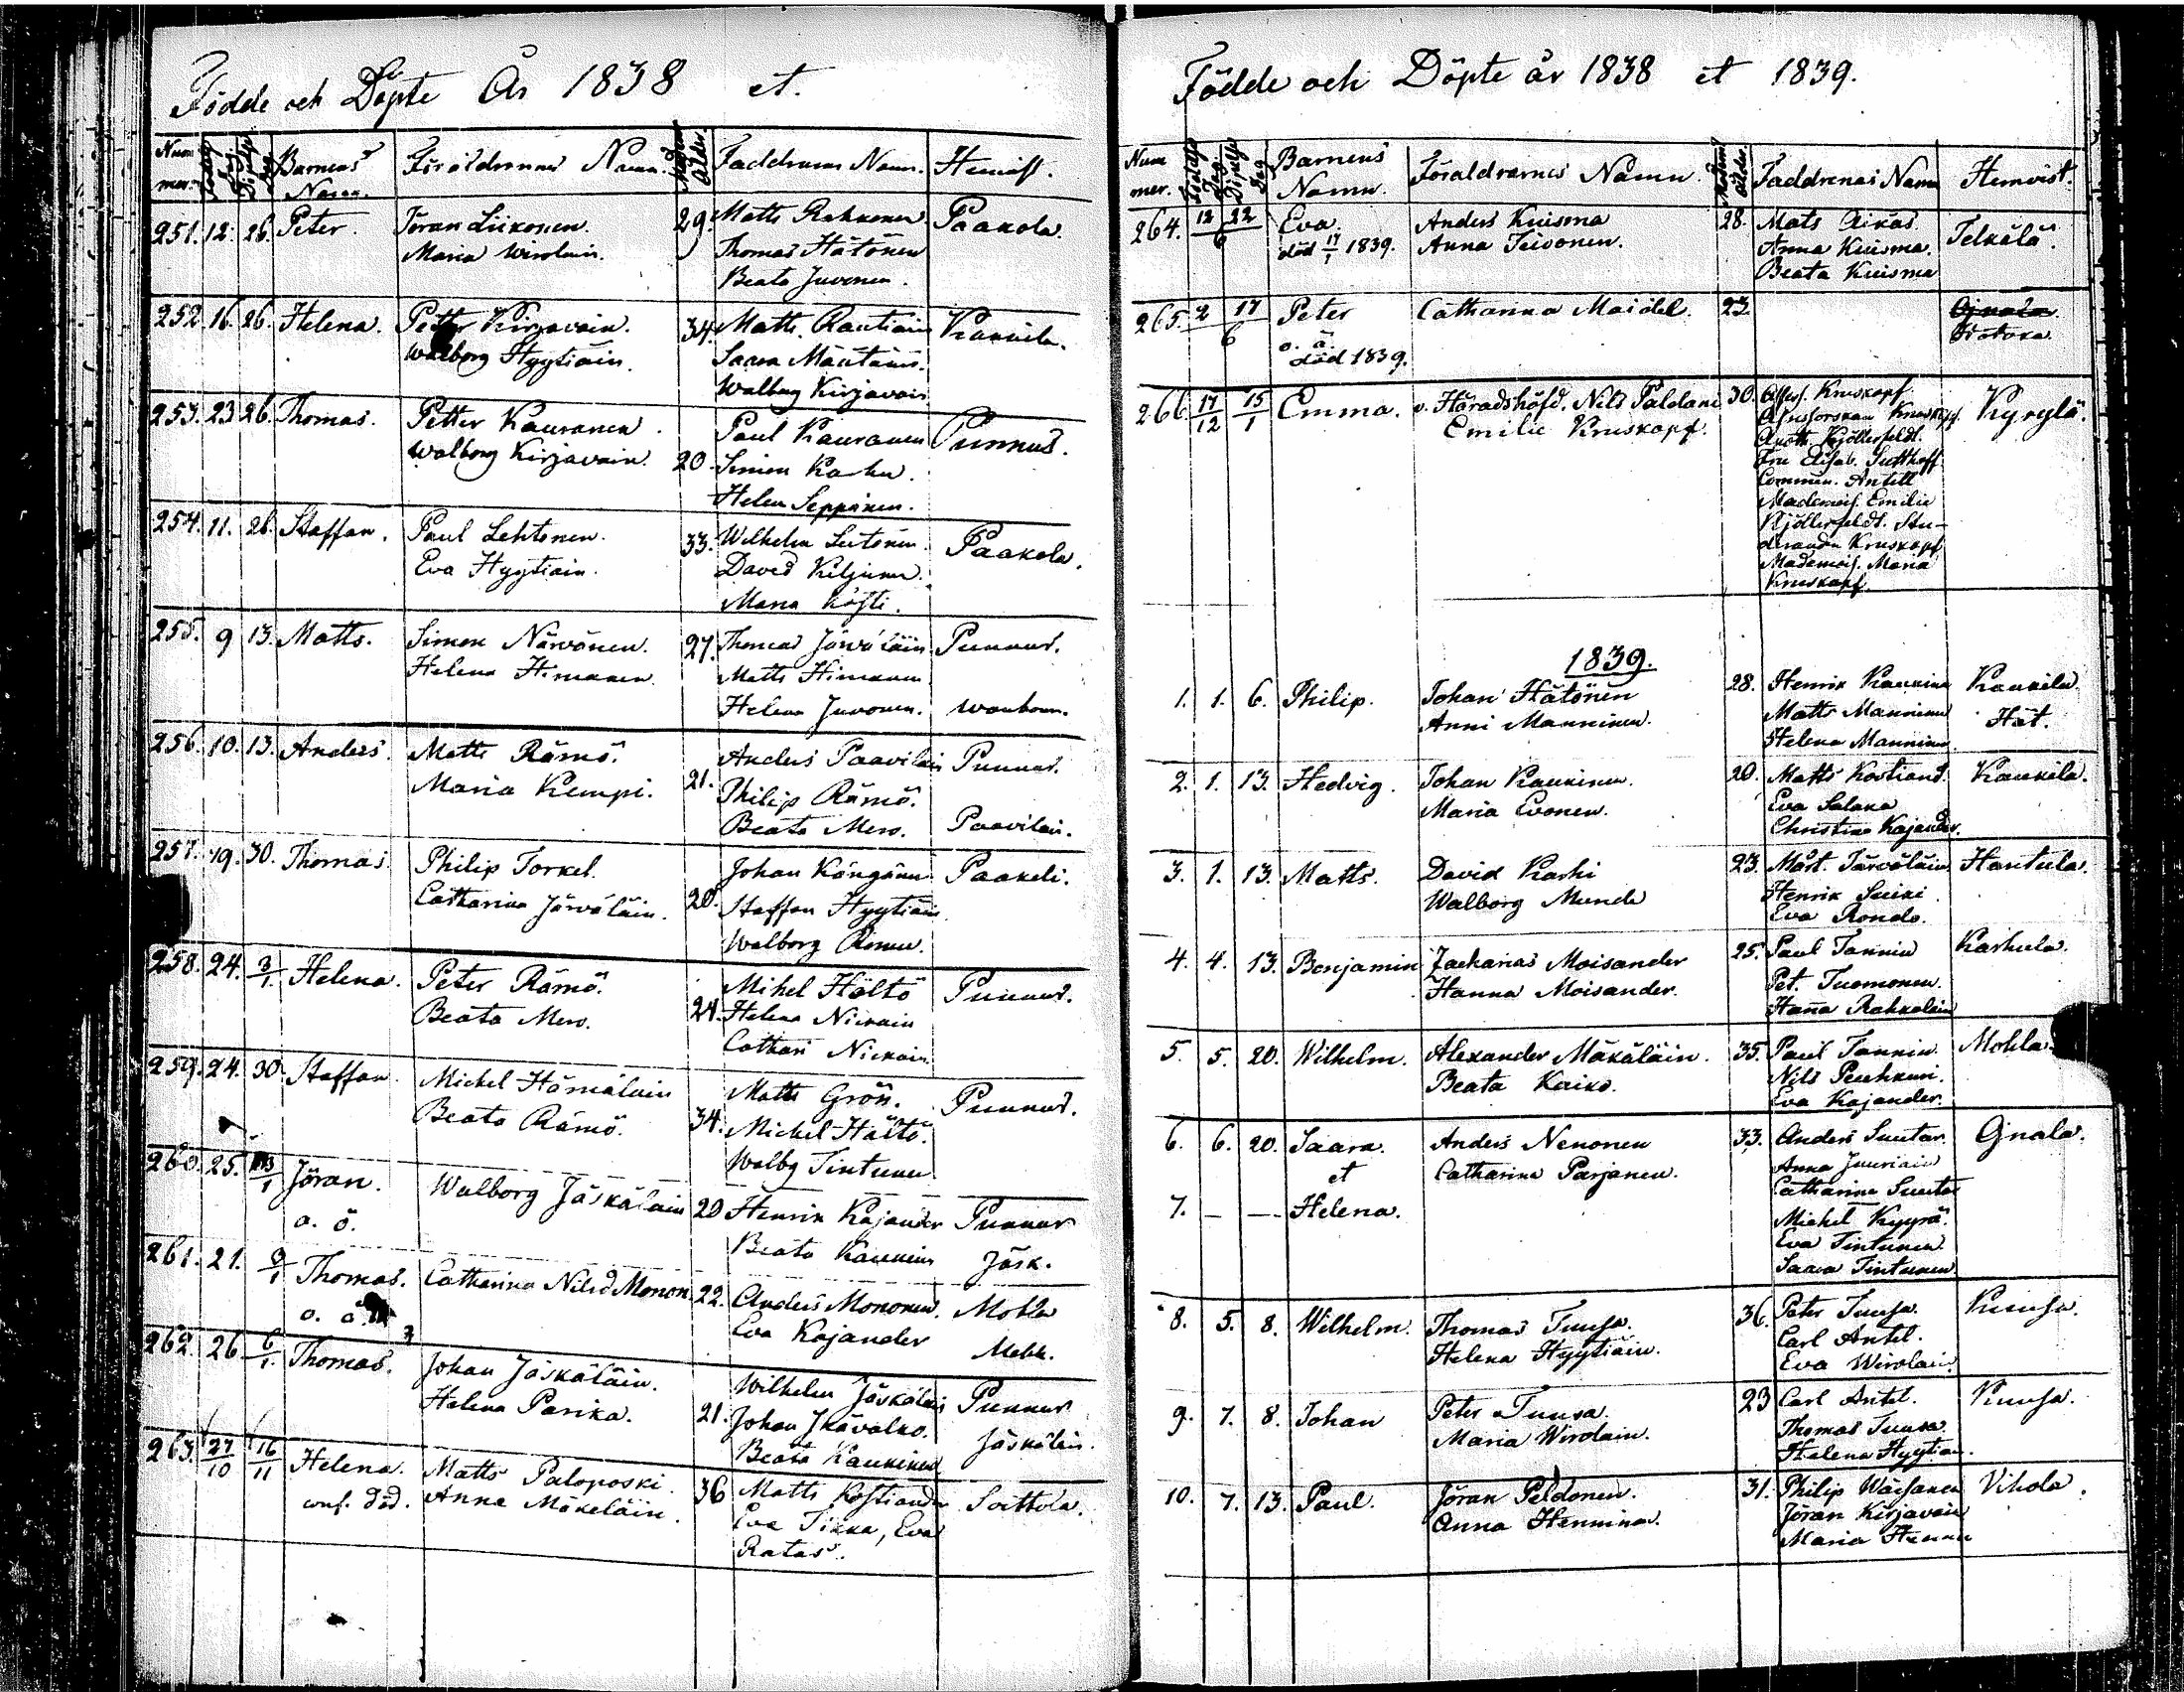 Födde och Döpte År 1838 et.
Num mer. Barnens Namn. Föräldrarnes Namn. Ålder. Faddrarnes Namn. Hemvist.
251. 12. 26. Peter. Jöran Liikonen. 29. Matts Rahkonen Paakola.
Maria Wirolain. Thomas Hätönen
Beata Juvonen.
252. 16. 26. Helena. Petter Kirjavain. 34. Matts Rautiain Kaukila.
Walborg Hyytiäin. Saara Määttäin.
Walborg Kirjavain
253. 23 26. Thomas. Petter Kauranen. Paul Kauranen Punnus.
Walborg Kirjavain. 20. Simon Karhu.
Helena Seppinen.
254. 11. 26. Staffan. Paul Lehtonen. 33. Wilhelm Leitonen. Paakola.
Eva Hyytiäin. David Kiljunen.
Maria Kosti.
255. 9 13. Matts. Simon Närvänen. 27. Thomas Järväläin Punnus.
Helena Himanen. Matts Himanen
Helena Juvonen.
256. 10. 13. Anders. Matts Rämö. Anders Paavilain Punnus.
Maria Kemppi. 21. Philip Rämö.
Beata Mero. Paavilain.
257. 19. 30. Thomas Philip Torkel. Johan Köngänen Paakeli.
Catharina Järväläin. 20. Staffan Hyytiäin
Walborg
258. 24. 3/1 Helena. Peter Rämö. Mihel Hältö Punnus.
Beata Mero. 24. Helena Nickain
Cathari Nickain.
259. 24. 30. Staffan. Michel Hämäläin Matts Grön. Punnus.
Beata Rämö. 34. Michel Hältö.
Walbg Tintunen
260. 25. 3/1 Jöran. Walborg Jäskäläin 20 Henrik Kajander Punnus
o. ä. Beata Kaukinen Jäsk.
261. 21. 9/1 Thomas. Catharina Nilsd Monon. 22. Anders Mononen. Mohla
o. ä. Eva Kajander
262. 26 6/1. Thomas. Johan Jäskäläin. Wilhelm Jäskäläin Punnus
Helena Parika. 21. Johan Ikävalko. Jäskäläin.
Beata Kaukinen
263. 27/10 16/11 Helena. Matts Paloposki. 36 Matts Kostiander Soittola.
död. Anna Mäkeläin. Eva Tikka, Eva
Ratas.
Födde och Döpte år 1838 et 1839.
Num mer. Födelse Dag. Döpelse Dag Barnens Namn. Föräldrarnes Namn. Ålder. Faddrenas Namn Hemvist.
264. 12 22/6 Eva. Anders Kuisma 28. Mats Aikas. Telkälä.
död 17/1 1839. Anna Teivonen. Anna Kuisma.
Beata Kuisma
265. 2 17/6 Peter Catharina Maidel. 23. Ojnala.
o. ä. Hotoka
död 1839.
266. 17/12 15/1 Emma. v. Häradshöfd. Nils Paldani 30. Assess. Kruskopf Kyrylä.
Emilie Kruskopf. Assessorskan Kruskopf
Apoth. Kjöllerfeldt.
Fru Elisab. Sutthoff
Commin. Antell
Mademois. Emilie
Kjöllerfeldt. Stu-
deranden Kruskopf
Mademois. Maria
Kruskopf.
1839.
1. 1. 6. Philip. Johan Hätönen 28. Henrik Kaukinen Kaukila.
Anni Manninen. Matts Manninen Hät.
Helena Manninen
2. 1. 13. Hedvig. Johan Kaukinen. 20. Matts Kostiand. Kaukila.
Maria Evonen. Eva Salaka
Christina Kajander.
3. 1. 13. Matts. David Karhi 23. Mårt. Järväläin Hantula.
Walborg Munde Henrik Suiki.
Eva Rondo.
4. 4. 13. Benjamin Zackarias Moisander 25. Paul Tannin Karhula.
Hanna Moisander. Pet. Tuomonen.
Hana Rahkolain
5. 5. 20. Wilhelm. Alexander Mäkäläin. 35. Paul Tannin Mohla.
Beata Kaiko. Nils Peuhkuri.
Eva Kajander.
6. 6. 20. Saara. Anders Nenonen 33. Anders Suutar. Ojnala.
et Catharina Parjanen. Anna Juuriain
Catharina Suutar
7. — — Helena. Michel Kyyrä.
Eva Tintunen
Saara Tintunen
8. 5. 8. Wilhelm. Thomas Tuusa. 36. Peter Tuusa. Kuusa.
Helena Hyytiäin. Carl Antel.
Eva Wirolain.
9. 7. 8. Johan Peter Tuusa. 23 Carl Antel. Kuusa.
Maria Wirolain. Thomas Tuusa.
Helena Hyytian.
10. 7. 13. Paul. Jöran Peldonen. 31. Philip Wäisänen Vihola.
Anna Hanninen. Jöran Kirjavain
Maria